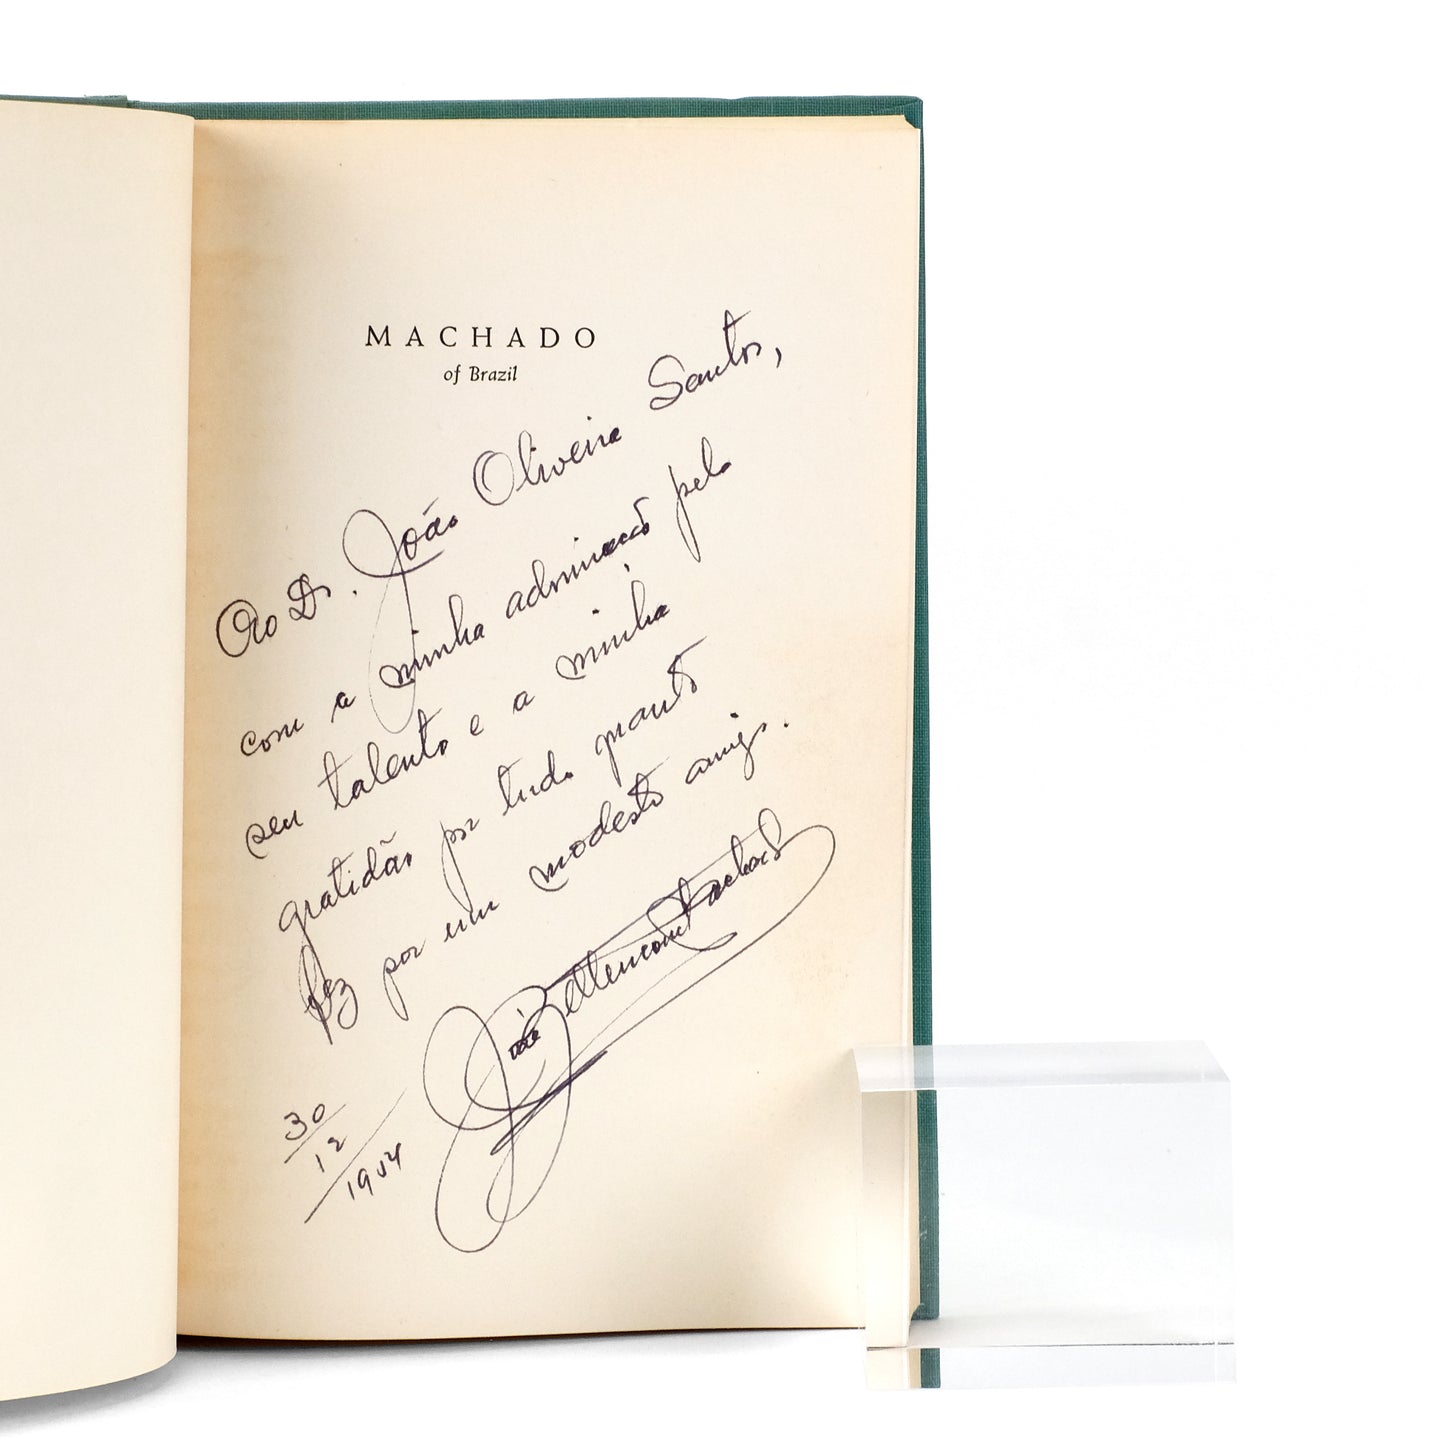 MACHADO
of Brazil
Ao Dr. João Oliveira Santos,
com a minha admiração pelo
seu talento e a minha
gratidão por tudo quanto
fez por um modesto amigo.
José Bettencourt Machado
30/12/1954